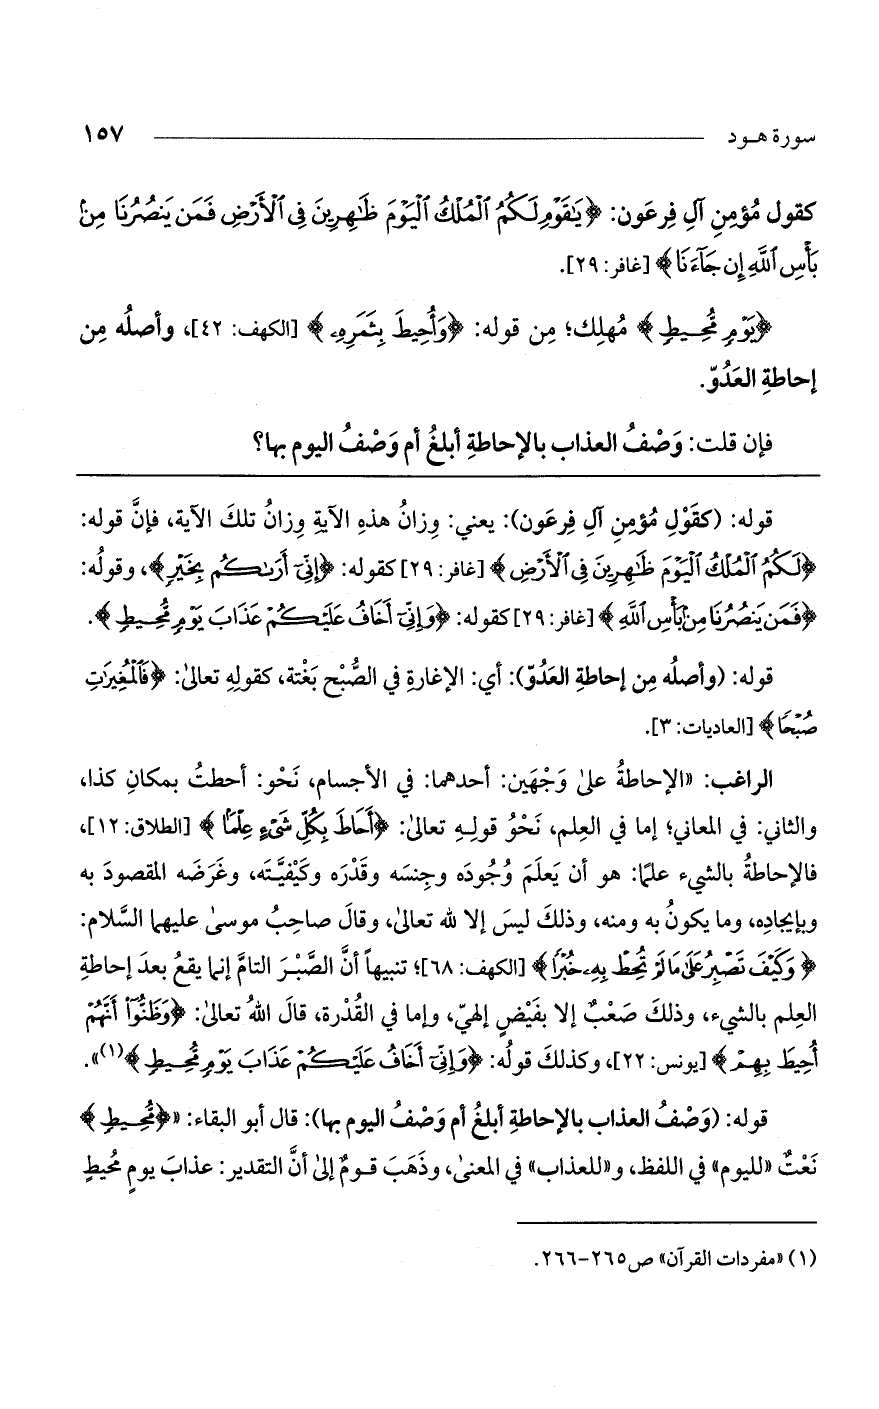 سورة هـود ١٥٧
كقول مُؤمِنِ آلِ فِرعَون: ﴿يَٰقَوْمِ لَكُمُ ٱلْمُلْكُ ٱلْيَوْمَ ظَٰهِرِينَ فِى ٱلْأَرْضِ فَمَن يَنصُرُنَا مِنۢ
بَأْسِ ٱللَّهِ إِن جَآءَنَا﴾ [غافر: ٢٩].
﴿يَوْمٍ مُّحِيطٍ﴾ مُهلِك؛ مِن قوله: ﴿وَأُحِيطَ بِثَمَرِهِۦ﴾ [الكهف: ٤٢]، وأصلُه مِن
إحاطةِ العَدُوّ.
فإن قلت: وَصْفُ العذاب بالإحاطةِ أبلغُ أم وَصْفُ اليوم بها؟
قوله: (كقَوْلِ مُؤمِنِ آلِ فِرعَون): يعني: وِزانُ هذهِ الآيةِ وِزانُ تلكَ الآية، فإنَّ قوله:
﴿لَكُمُ ٱلْمُلْكُ ٱلْيَوْمَ ظَٰهِرِينَ فِى ٱلْأَرْضِ﴾ [غافر: ٢٩] كقوله: ﴿إِنِّىٓ أَرَىٰكُم بِخَيْرٍ﴾، وقولُه:
﴿فَمَن يَنصُرُنَا مِنۢ بَأْسِ ٱللَّهِ﴾ [غافر: ٢٩] كقوله: ﴿وَإِنِّىٓ أَخَافُ عَلَيْكُمْ عَذَابَ يَوْمٍ مُّحِيطٍ﴾.
قوله: (وأصلُه مِن إحاطةِ العَدُوّ): أي: الإغارةِ في الصُّبْح بَغْتة، كقولِهِ تعالىٰ: ﴿فَٱلْمُغِيرَٰتِ
صُبْحًا﴾ [العاديات: ٣].
الراغب: «الإحاطةُ علىٰ وَجْهَين: أحدهما: في الأجسام، نَحْو: أحطتُ بمكانِ كذا،
والثاني: في المعاني؛ إما في العِلم، نَحْوُ قولِـهِ تعالىٰ: ﴿أَحَاطَ بِكُلِّ شَىْءٍ عِلْمًۢا﴾ [الطلاق: ١٢]،
فالإحاطةُ بالشيء علمًا: هو أن يَعلَمَ وُجُودَه وجِنسَه وقَدْرَه وكَيْفيَّـتَه، وغَرَضَه المقصودَ به
وبإيجادِه، وما يكونُ به ومنه، وذلكَ ليسَ إلا لله تعالىٰ، وقالَ صاحِبُ موسىٰ عليهما السَّلام:
﴿وَكَيْفَ تَصْبِرُ عَلَىٰ مَا لَمْ تُحِطْ بِهِۦ خُبْرًا﴾ [الكهف: ٦٨]؛ تنبيهاً أنَّ الصَّبْـرَ التامَّ إنما يقعُ بعدَ إحاطةِ
العِلم بالشيء، وذلكَ صَعْبٌ إلا بفَيْضٍ إلهيّ، وإما في القُدْرة، قالَ اللهُ تعالىٰ: ﴿وَظَنُّوٓا۟ أَنَّهُمْ
أُحِيطَ بِهِمْ﴾ [يونس: ٢٢]، وكذلكَ قولُه: ﴿وَإِنِّىٓ أَخَافُ عَلَيْكُمْ عَذَابَ يَوْمٍ مُّحِيطٍ﴾(١)».
قوله: (وَصْفُ العذاب بالإحاطةِ أبلغُ أم وَصْفُ اليوم بها): قال أبو البقاء: «﴿مُّحِيطٍ﴾
نَعْتٌ «لليوم» في اللفظ، و«للعذاب» في المعنىٰ، وذَهَبَ قـومٌ إلىٰ أنَّ التقدير: عذابَ يومٍ مُحيطٍ
(١) «مفردات القرآن» ص٢٦٥-٢٦٦.